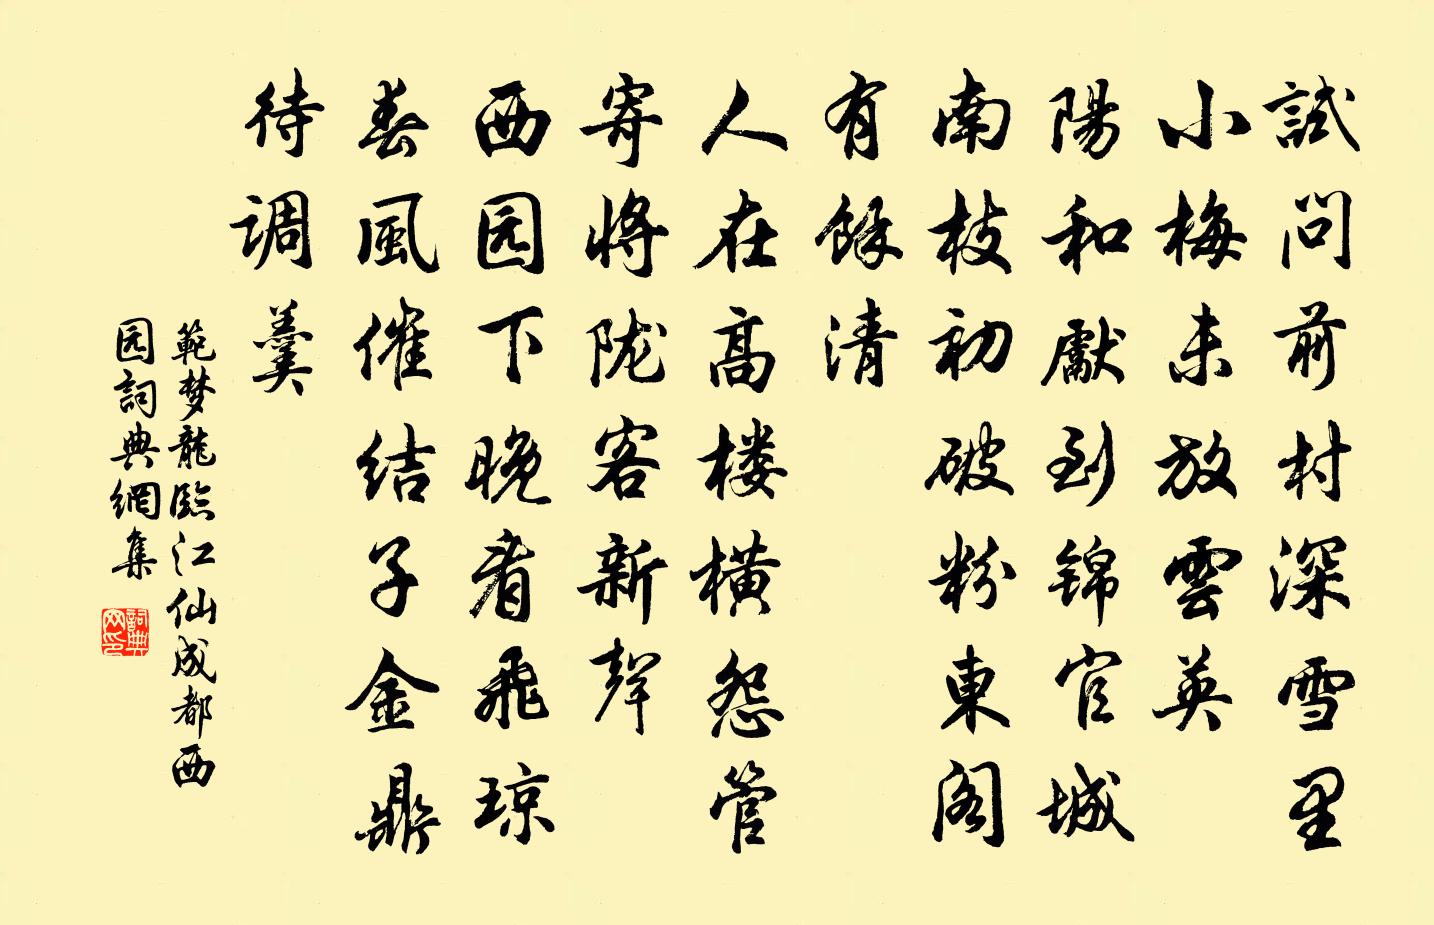 試问前村深雪里
小梅未放雲英
陽和獻到锦官城
南枝初破粉東阁
有餘清
人在高楼横怨管
寄将陇客新聲
西园下晚看飛琼
春風催结子金鼎
待调羹
範梦龍臨江仙成都西
园詞典網集
詞典网印